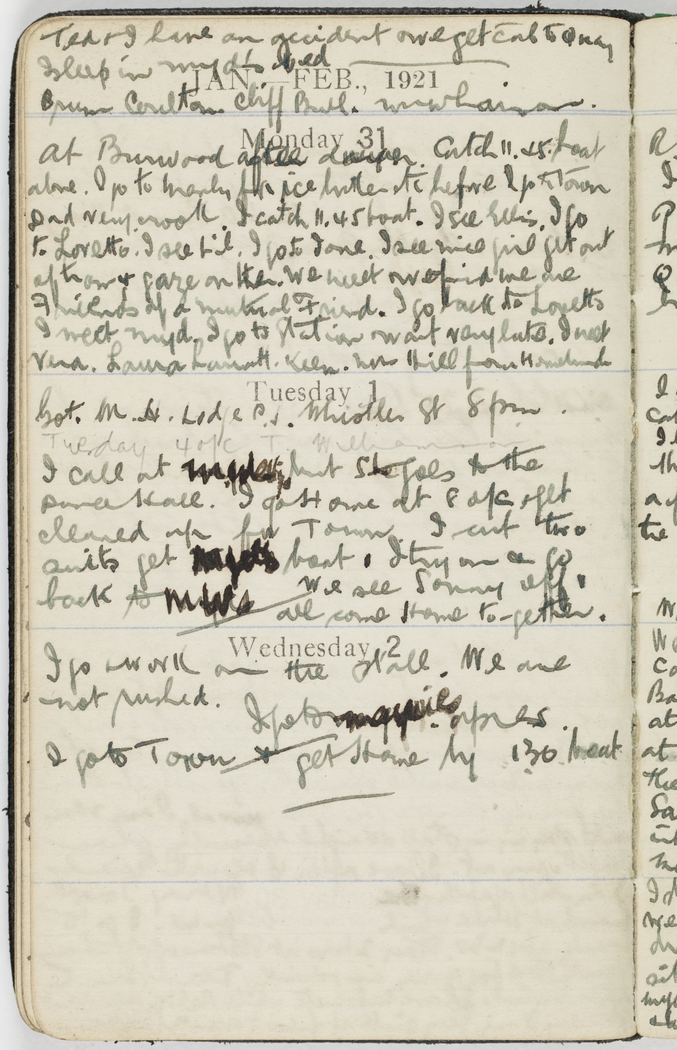 Ted & I have an accident & we get cab to Quay
Sleep in myd's bed
JAN.—FEB., 1921
Cliff Butl.
Monday 31
At Burwood after dinner. Catch 11.45 boat
alone. I go to Manly for ice butter etc before I go to Town
Dad very crook. I catch 11.45 boat. I see Ellis. I go
to Loretto. I see Lil. I go to Jane. I see nice girl get out
of tram & gaze on her. We meet & we find we are
Friends of a mutual Friend. I go back to Loretto
I meet myd. I go to Station & wait very late. I meet
Vera. Laura
Tuesday 1
Got. M. H. Lodge Whistler St 8 pm.
Tuesday 4 o/c T. Williamson
I call at but She goes to the
Dance Hall. I go Home at 8 o/c & get
cleaned up for Town I cut two
suits get boat. I try on & go
back to We see Sonny off.
all come Home to-gether.
Wednesday 2
I go & work on the stall. We are
not pushed.
I go to apres.
I go to Town & get Home by 1.30 boat